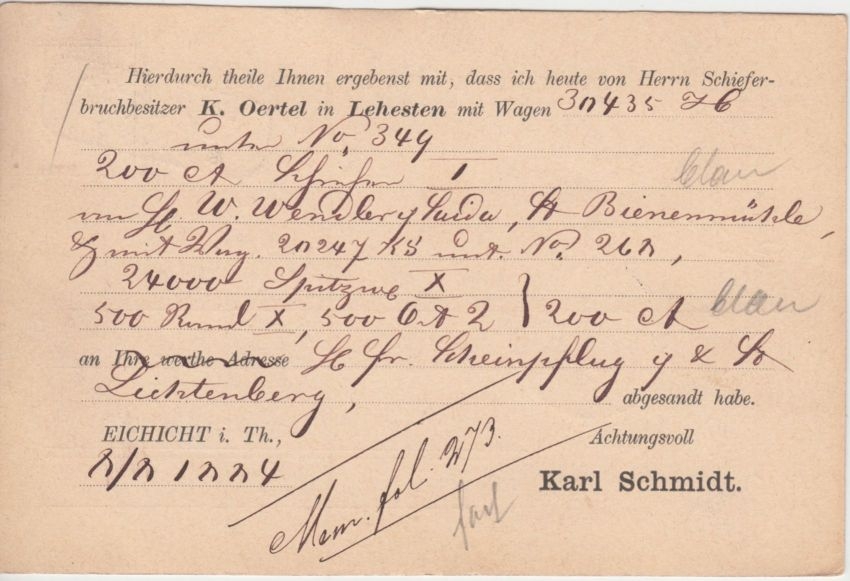 Hierdurch theile Ihnen ergebenst mit, dass ich heute von Herrn Schiefer-
bruchbesitzer K. Oertel in Lehesten mit Wagen 30435
unter No. 349
200 Ct Schiefer I blau
an H W. Wendler Saida, St Bienenmühle,
mit Wag. 20247 KS unt. No. 268,
24000 Spitzw. X
500 Rund X, 500 Oct 2 } 200 Ct blau
an Ihre werthe Adresse H Fr. Scheinpflug &
Lichtenberg, abgesandt habe.
EICHICHT i. Th., Achtungsvoll
8/8 1884 Karl Schmidt.
Mem. fol. 273.